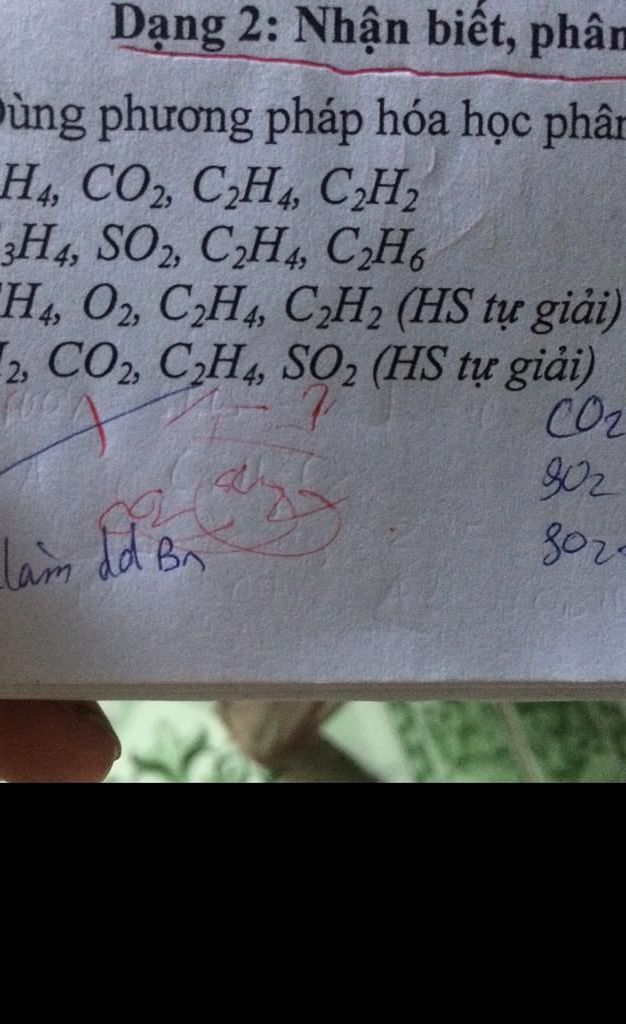 Dạng 2: Nhận biết, phân
Dùng phương pháp hóa học phân
H₄, CO₂, C₂H₄, C₂H₂
₃H₄, SO₂, C₂H₄, C₂H₆
H₄, O₂, C₂H₄, C₂H₂ (HS tự giải)
₂, CO₂, C₂H₄, SO₂ (HS tự giải)
?
CO₂
SO₂
SO₂
làm dd Br